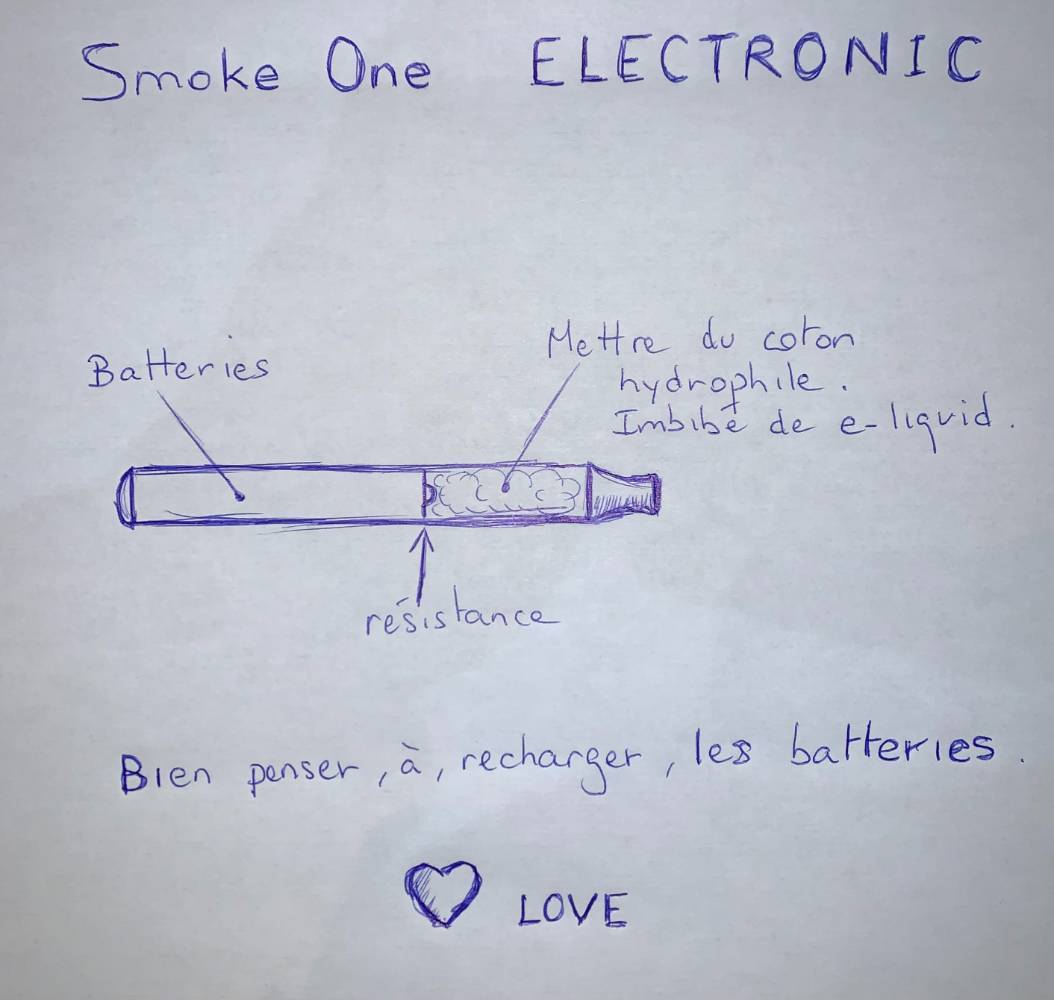 Smoke One ELECTRONIC
Batteries
Mettre du coton
hydrophile.
Imbibé de e-liquid.
résistance
Bien penser, à, recharger, les batteries.
LOVE